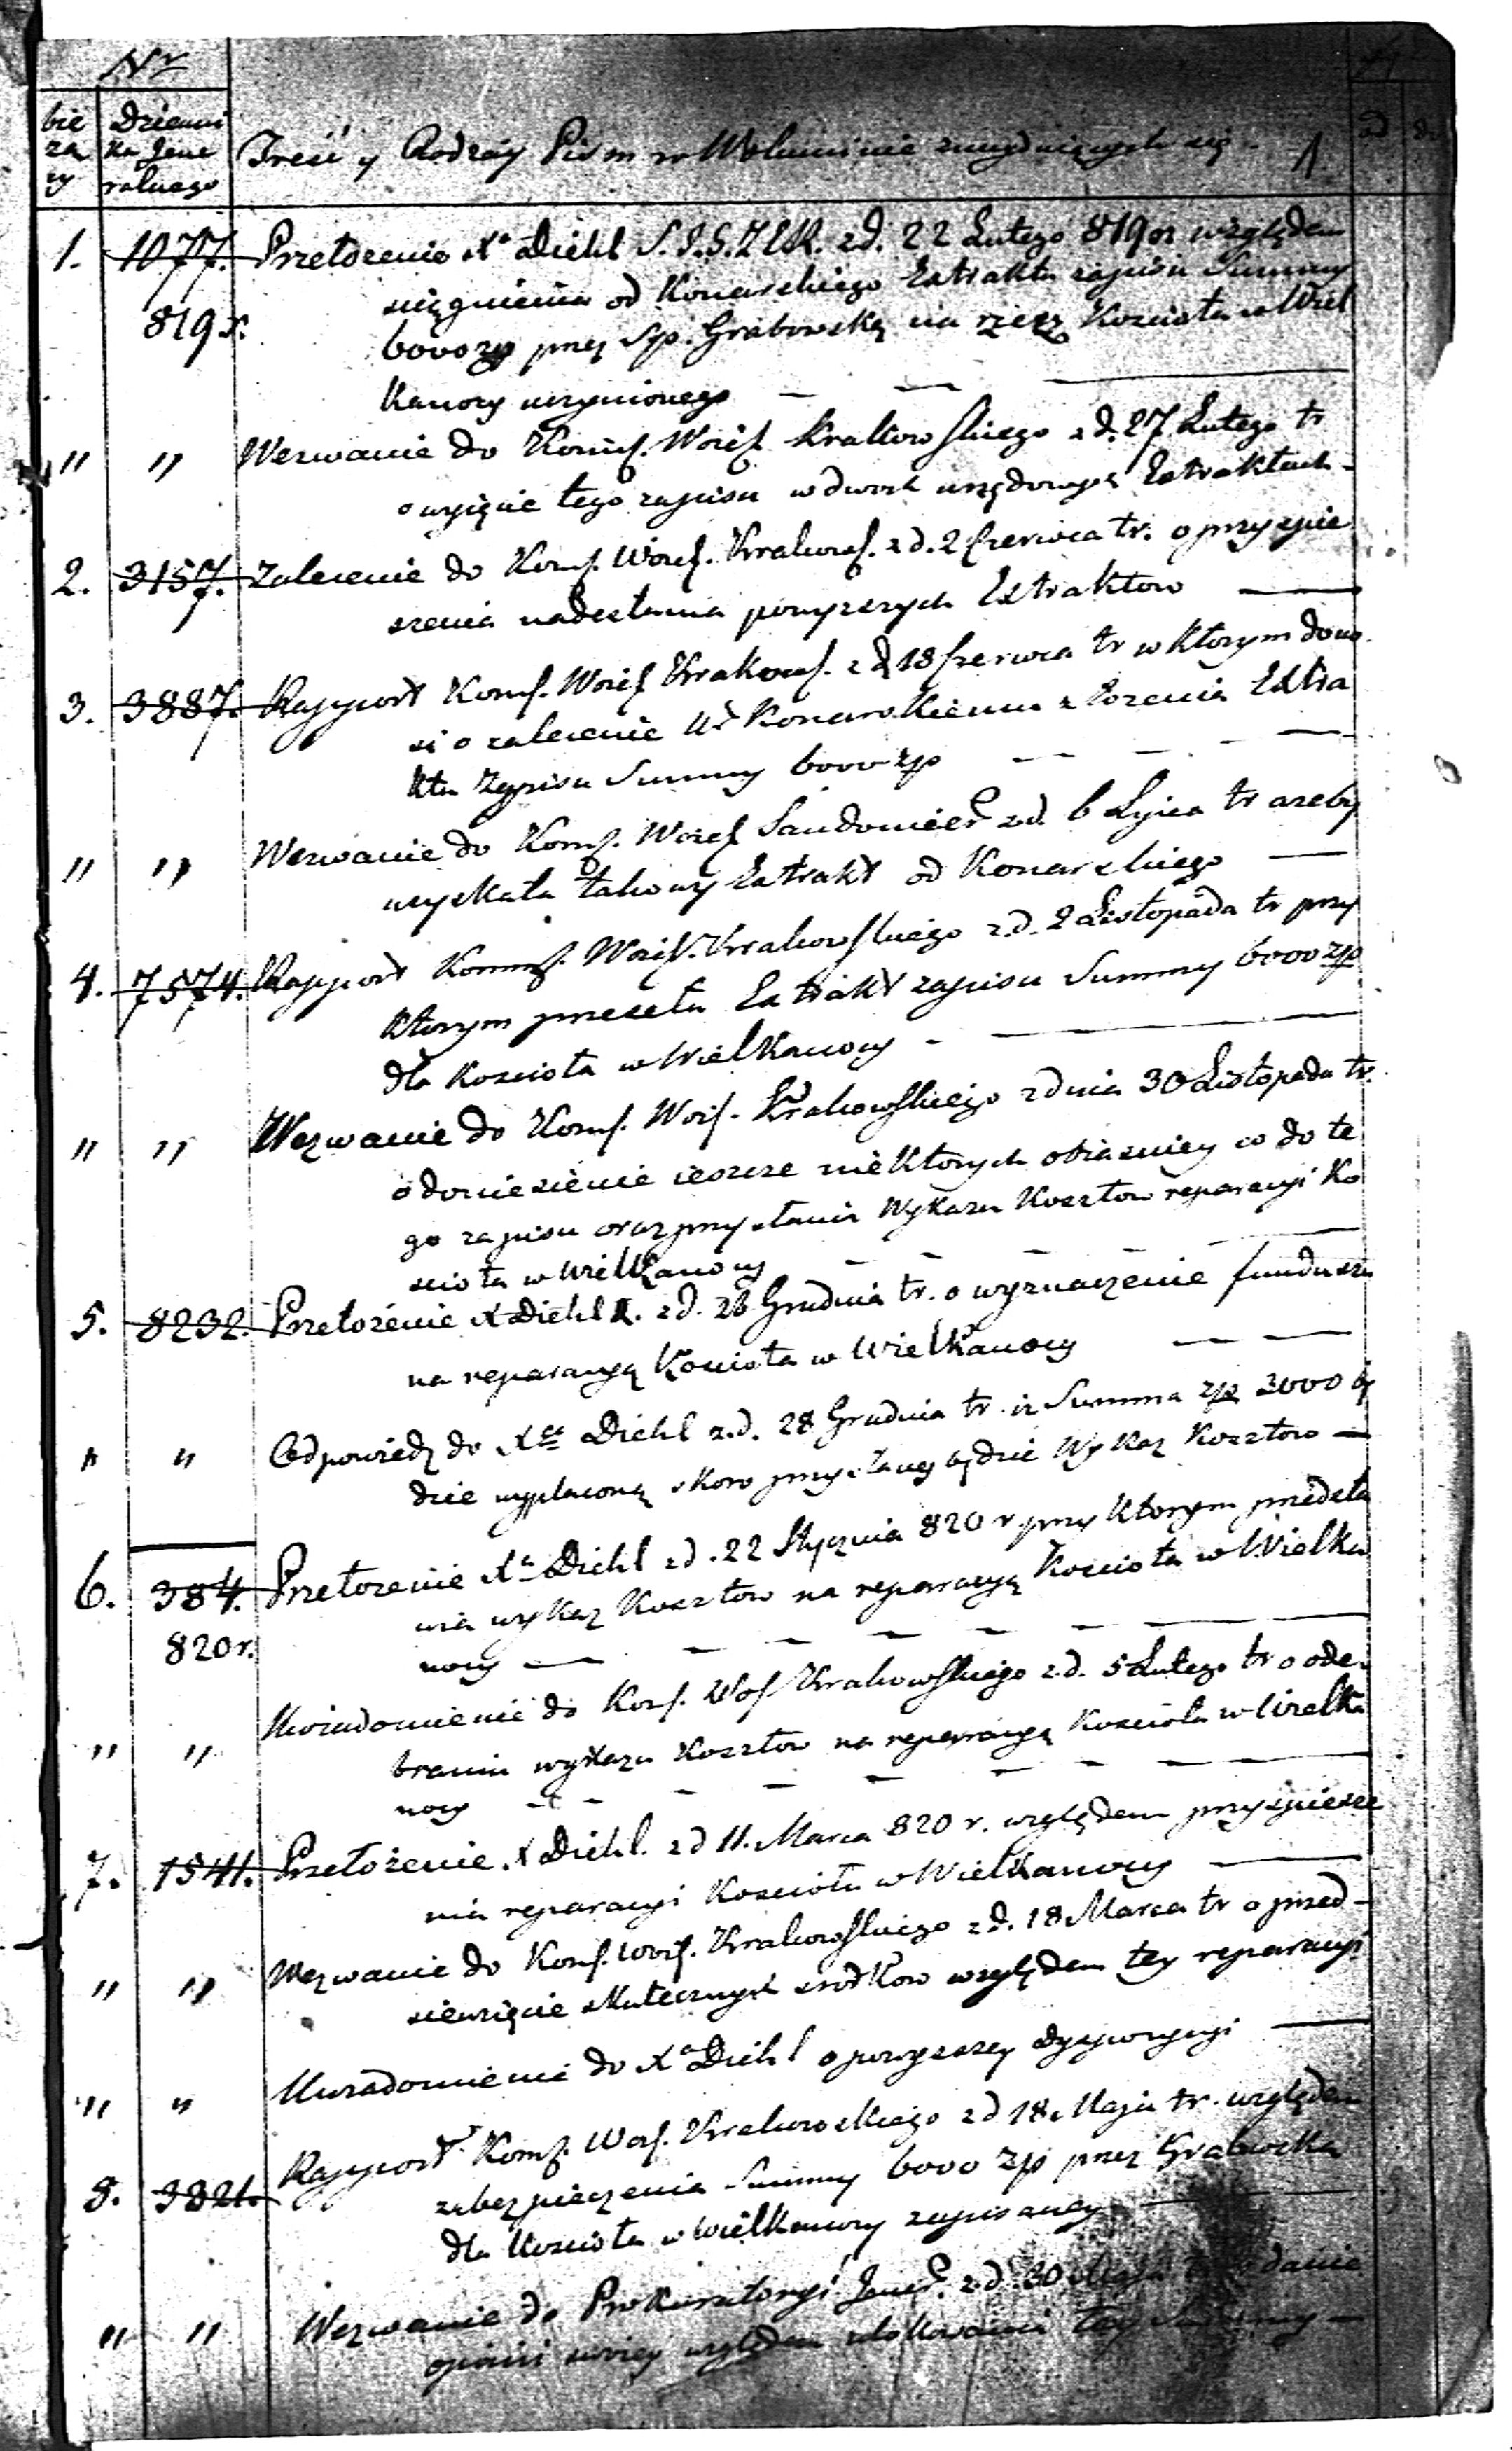 Nr
bie Dzienni
żą ka Jene
cy ralnego
Treść y Rodzay Pism w Woluminie znaydujących się. 1
1. 1077. Przełożenie Xa Diehl S. J. S. Z. E. R. z d. 22 Lutego 819 r. względem
819 r. sciągnienia od Konarskiego Extraktu zapisu Summy
6000 zp przez Sp. Grabowską na rzecz Kościoła w Wiel
kanocy uczynionego — — —
" " Wezwanie do Komis. Woiew. Krakowskiego z d. 27 Lutego tr
o wyięcie tego zapisu w dwóch urzędowych Extraktach -
2. 3157. Zalecenie do Kom. Woiew. Krakows. z d. 2 Czerwca tr. o przyspie
szenia nadesłania powyzszych Extraktow —
3. 3887. Rapport Kom. Woiew Krakows. z d 18 Czerwca tr w ktorym dono
si o zalecenie Ur Konarskiemu złożenia Extra
ktu Zapisu Summy 6000 zp — — — —
" " Wezwanie do Kom. Woiew Sandomier z d. 6 Lipca tr azeby
uzyskała takowy Extrakt od Konarskiego —
4. 7574. Rapport Komm. Woiew. Krakowskiego z. d. 2 Listopada tr przy
ktorym przeseła Extrakt zapisu Summy 6000 zp
dla Koscioła w Wielkanocy - —
" " Wezwanie do Kom. Woi. Krakowskiego z dnia 30 Listopada tr.
o doniesienie ieszcze niektorych obiasniey co do te
go zapisu oraz przysłania Wykazu Kosztow reparacyi Ko
scioła w Wielkanocy — — — —
5. 8232. Przełożenie X Diehl z. d. 28 Grudnia tr. o wyznaczenie funduszu
na reparacyą Koscioła w Wielkanocy — —
" " Odpowiedz do Xa Diehl z. d. 28 Grudnia tr. iz Summa zp 3000 bę
dzie wypłaconą skoro przysłany będzie Wykaz Kosztow —
6. 384. Przełozenie Xa Diehl z d. 22 Stycznia 820 r przy ktorym przedsta
820 r. wia wykaz Kosztow na reparacyą Koscioła w Wielka
nocy — — — — — — —
" " Uwiadomienie do Kom. Wo. Krakowskiego z. d. 5 Lutego tr o ode
braniu wykazu Kosztow na reparacyą Koscioła w Wielka
nocy — - — — — — —
7. 1541. Przełożenie X Diehl. z d 11. Marca 820 r. względem przyspiesze
nia reparacyi Koscioła w Wielkanocy —
" " Wezwanie do Kom. Woi. Krakowskiego z d. 18 Marca tr o przed-
siewzięcie skutecznych srodkow względem tey reparacyi
" " Uwiadomienie do Xa Diehl o powyzszey dyspozycyi —
8. 3321. Rapport Kom. Woi. Krakowskiego z d 18 Maja tr. względem
zabezpieczenia Summy 6000 zp przez Grabowską
dla Koscioła w Wielkanocy zapisaney —
" " Wezwanie do Prokuratoryi Jener z. d. 30 Maja danie
opinii swoiey względem ulokowania tey Summy —